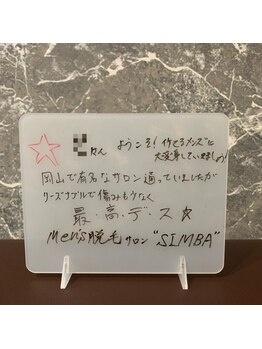 さん ようこそ! イケてるメンズに
大変身していきましょう!
岡山で有名なサロン通っていましたが
リーズナブルで傷みもなく
最・高・デ・ス☆
Men's脱毛サロン "SIMBA"